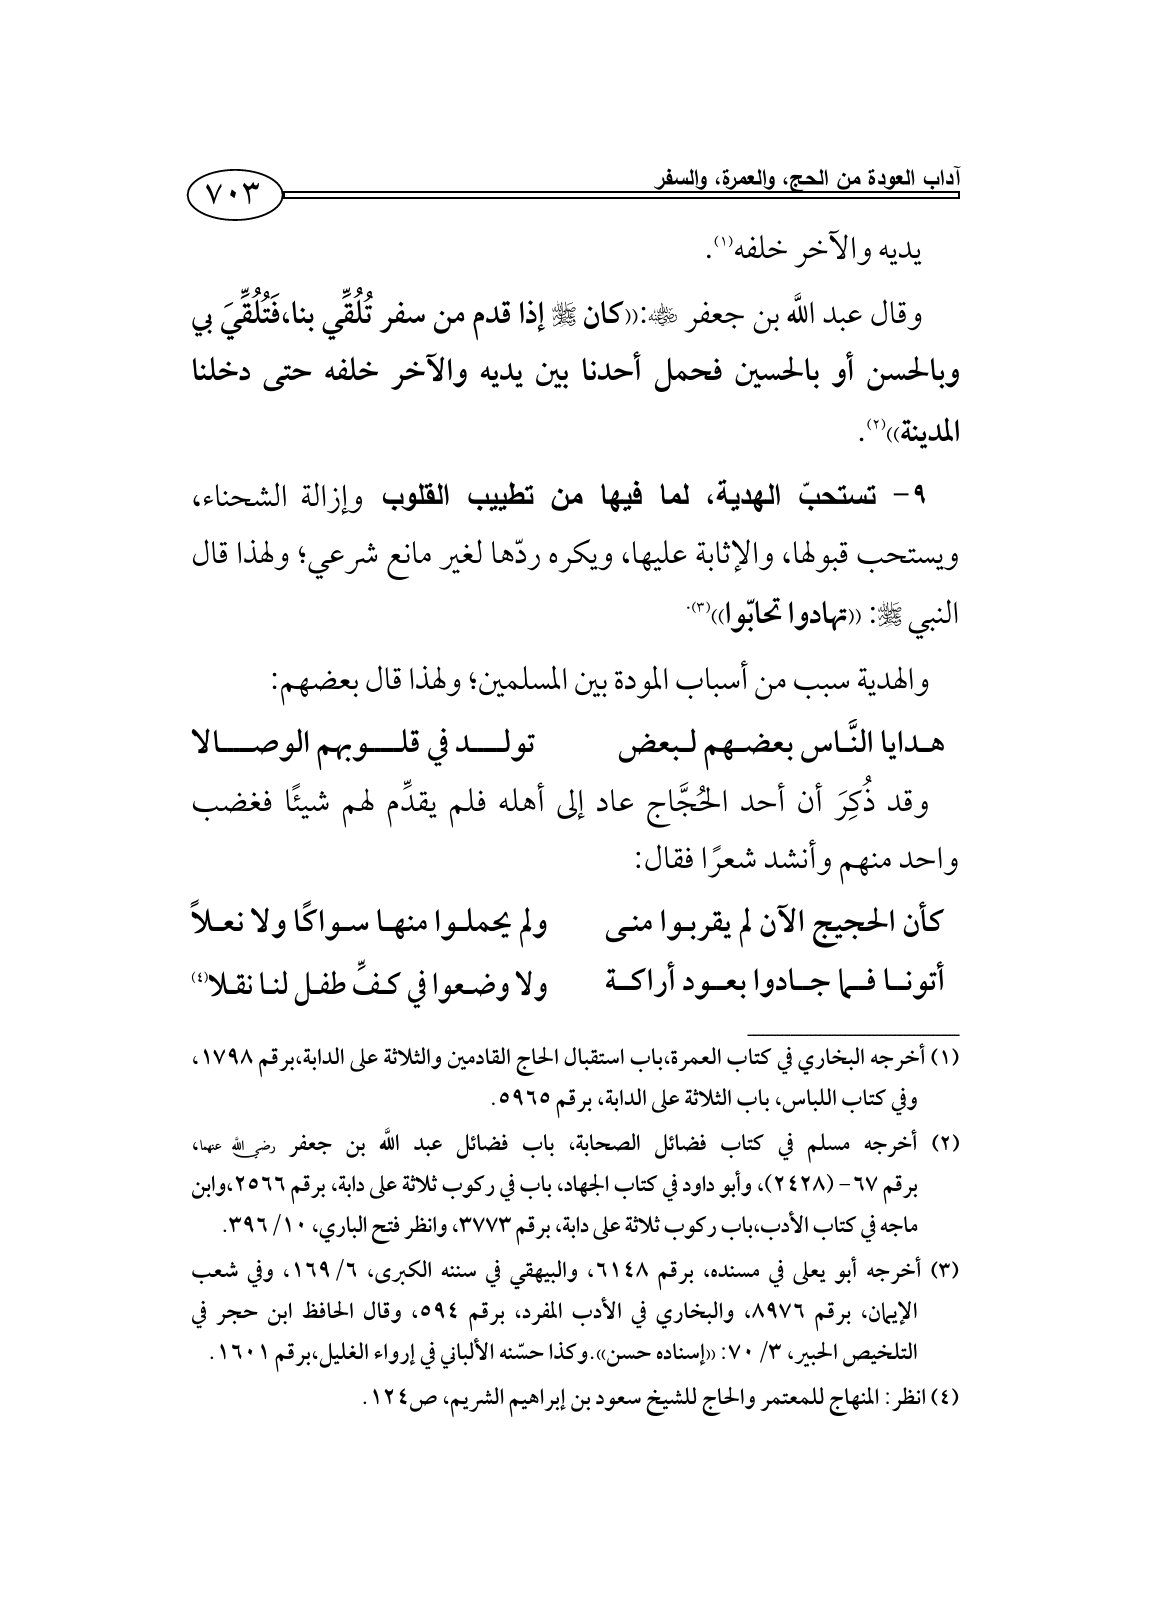 آداب العودة من الحج، والعمرة، والسفر ٧٠٣
يديه والآخر خلفه(١).
وقال عبد الله بن جعفر ﷺ:((كان ﷺ إذا قدم من سفر تُلُقِّي بنا،فَتُلُقِّيَ بي
وبالحسن أو بالحسين فحمل أحدنا بين يديه والآخر خلفه حتى دخلنا
المدينة))(٢).
٩- تستحبّ الهدية، لما فيها من تطييب القلوب وإزالة الشحناء،
ويستحب قبولها، والإثابة عليها، ويكره ردّها لغير مانع شرعي؛ ولهذا قال
النبي ﷺ: ((تهادوا تحابّوا))(٣).
والهدية سبب من أسباب المودة بين المسلمين؛ ولهذا قال بعضهم:
هـدايا النَّـاس بعضـهم لـبعض تولـــد في قلـــوبهم الوصـــالا
وقد ذُكِرَ أن أحد الحُجَّاج عاد إلى أهله فلم يقدِّم لهم شيئًا فغضب
واحد منهم وأنشد شعرًا فقال:
كأن الحجيج الآن لم يقربـوا منـى ولم يحملـوا منهـا سـواكًا ولا نعـلاً
أتونـا فـما جـادوا بعـود أراكـة ولا وضـعوا في كـفِّ طفـل لنـا نقـلا(٤)
(١) أخرجه البخاري في كتاب العمرة،باب استقبال الحاج القادمين والثلاثة على الدابة،برقم ١٧٩٨،
وفي كتاب اللباس، باب الثلاثة على الدابة، برقم ٥٩٦٥.
(٢) أخرجه مسلم في كتاب فضائل الصحابة، باب فضائل عبد الله بن جعفر رضي الله عنهما،
برقم ٦٧- (٢٤٢٨)، وأبو داود في كتاب الجهاد، باب في ركوب ثلاثة على دابة، برقم ٢٥٦٦،وابن
ماجه في كتاب الأدب،باب ركوب ثلاثة على دابة، برقم ٣٧٧٣، وانظر فتح الباري، ١٠/ ٣٩٦.
(٣) أخرجه أبو يعلى في مسنده، برقم ٦١٤٨، والبيهقي في سننه الكبرى، ٦/ ١٦٩، وفي شعب
الإيمان، برقم ٨٩٧٦، والبخاري في الأدب المفرد، برقم ٥٩٤، وقال الحافظ ابن حجر في
التلخيص الحبير، ٣/ ٧٠: ((إسناده حسن)).وكذا حسّنه الألباني في إرواء الغليل،برقم ١٦٠١.
(٤) انظر: المنهاج للمعتمر والحاج للشيخ سعود بن إبراهيم الشريم، ص١٢٤.